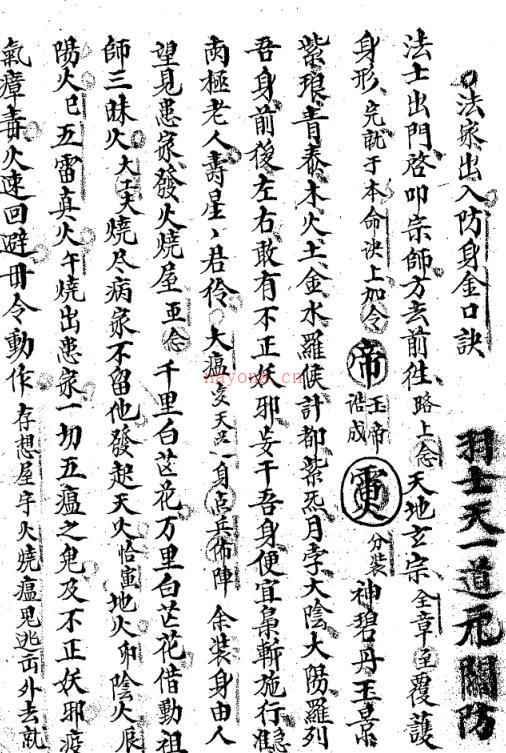 法家出入防身金口訣
羽士天一道元關防
法士出門啓叩宗師方去前徃路上念天地玄宗全章至覆護
身形完就于本命決上加令帝玉帝誥成分裝神碧丹玉景
紫琅青泰木火土金水羅候計都紫炁月孛大陰大陽羅列
吾身前後左右敢有不正妖邪妄干吾身便宜梟斬施行
南極老人壽星丶君伶大瘟天一身占兵佈陣余裝身由人
望見患家發火燒屋亚念千里白芒花万里白芒花借動祖
師三昧火大燒尽病家不留他發起天火恰寅地火卯陰火辰
陽火巳五雷真火午燒出患家一切五瘟之鬼及不正妖邪疫
氣瘴毒火速回避毌令動作存想屋宇火燒瘟見逃出外去就
nayona.cn